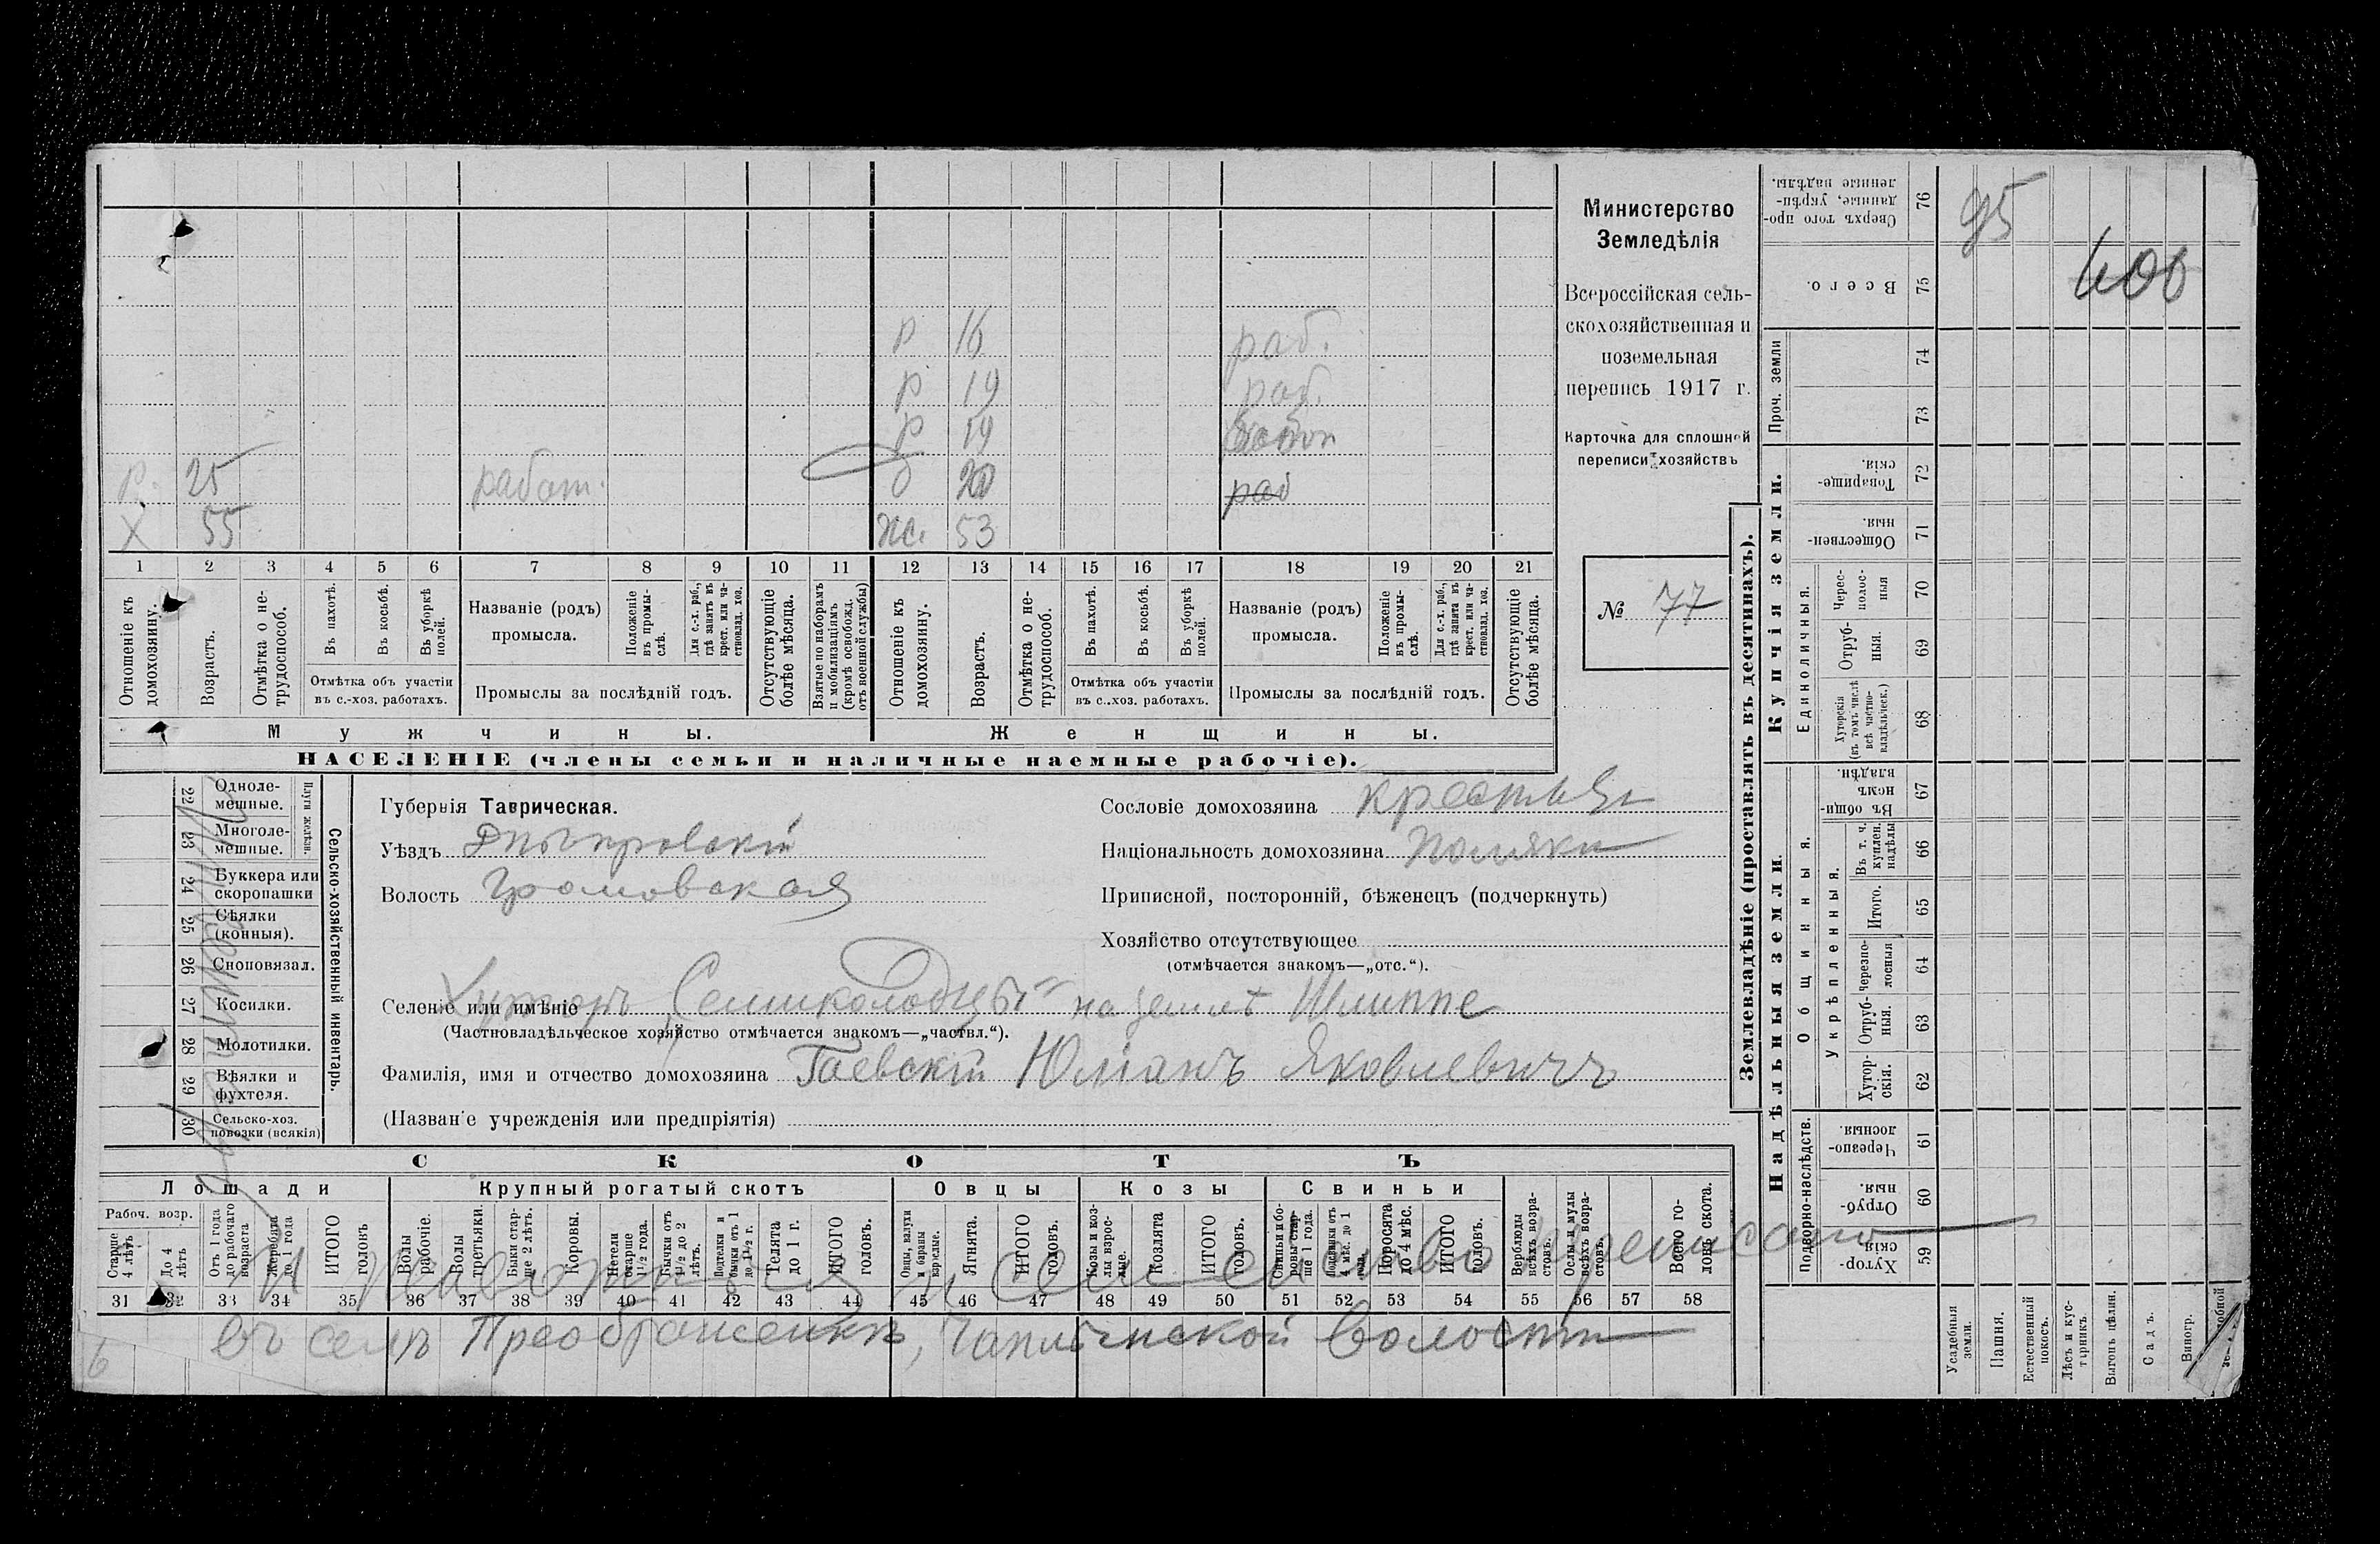 Министерство
Земледѣлія
Всероссійская сель-
скохозяйственная и
поземельная
перепись 1917 г.
Карточка для сплошной
переписи хозяйствъ
№ 77
р 16 раб.
р 19 раб.
р 19
р. 25 работ. 20 раб
Х 55 ж. 53
1 2 3 4 5 6 7 8 9 10 11 12 13 14 15 16 17 18 19 20 21
Отношеніе къ домохозяину.
Возрастъ.
Отмѣтка о не-трудоспособ.
Въ пахотѣ.
Въ косьбѣ.
Въ уборкѣ полей.
Отмѣтка объ участіи
въ с.-хоз. работахъ.
Названіе (родъ)
промысла.
Положеніе въ промы-слѣ.
Для с.-х. раб., гдѣ занятъ въ крест. или ча-стновлад. хоз.
Промыслы за послѣдній годъ.
Отсутствующіе болѣе мѣсяца.
Взятые по наборамъ и мобилизаціямъ (кромѣ освобожд. отъ военной службы)
Отношеніе къ домохозяину.
Возрастъ.
Отмѣтка о не-трудоспособ.
Въ пахотѣ.
Въ косьбѣ.
Въ уборкѣ полей.
Отмѣтка объ участіи
въ с.-хоз. работахъ.
Названіе (родъ)
промысла.
Положеніе въ промы-слѣ.
Для с.-х. раб., гдѣ занята въ крест. или ча-стновлад. хоз.
Промыслы за послѣдній годъ.
Отсутствующіе болѣе мѣсяца.
Мужчины. Женщины.
НАСЕЛЕНІЕ (члены семьи и наличные наемные рабочіе).
Сельско-хозяйственный инвентарь.
Плуги желѣзн.
22 Одноле-мешные.
23 Многоле-мешные.
24 Буккера или скоропашки
25 Сѣялки (конныя).
26 Сноповязал.
27 Косилки.
28 Молотилки.
29 Вѣялки и фухтеля.
30 Сельско-хоз. повозки (всякія)
Губернія Таврическая.
Уѣздъ Днѣпровскій
Волость Громовская
Сословіе домохозяина крестья
Національность домохозяина Поляки
Приписной, посторонній, бѣженецъ (подчеркнуть)
Хозяйство отсутствующее
(отмѣчается знакомъ—„отс.“).
Селеніе или имѣніе Хуторъ „Семиколодцы“ на землѣ Шлиппе
(Частновладѣльческое хозяйство отмѣчается знакомъ—„частвл.“).
Фамилія, имя и отчество домохозяина Гаевскій Юліанъ Яковлевичъ
(Названіе учрежденія или предпріятія)
СКОТЪ
Лошади Крупный рогатый скотъ Овцы Козы Свиньи
Рабоч. возр.
Старше 4 лѣтъ
До 4 лѣтъ
Отъ 1 года до рабочаго возраста
Жеребята до 1 года
ИТОГО головъ
Волы рабочіе.
Волы третьяки.
Быки стар-ше 2 лѣтъ.
Коровы.
Нетели старше 1½ года.
Бычки отъ 1½ до 2 лѣтъ.
Подтелки и бычки отъ 1 до 1½ г.
Телята до 1 г.
ИТОГО головъ.
Овцы, валухи и бараны взрослые.
Ягнята.
ИТОГО головъ.
Козы и коз-лы взрос-лые.
Козлята
ИТОГО головъ.
Свиньи и бо-ровы стар-ше 1 года.
Подсвинки отъ 4 мѣс. до 1 года.
Поросята до 4 мѣс.
ИТОГО головъ.
Верблюды всѣхъ возра-стовъ.
Ослы и мулы всѣхъ возра-стовъ.
Всего го-ловъ скота.
31 32 33 34 35 36 37 38 39 40 41 42 43 44 45 46 47 48 49 50 51 52 53 54 55 56 57 58
въ селѣ Преображенкѣ, Чаплинской волости
6
Землевладѣніе (проставлять въ десятинахъ).
Купчія земли.
Надѣльныя земли.
Сверхъ того про-данные, укрѣп-ленные надѣлы. 76 95
Всего. 75 400
Проч. земли 74
73
Товарище-скія. 72
Обществен-ныя. 71
Единоличныя.
Черес-полос-ныя 70
Отруб-ныя. 69
Хуторскія (въ томъ числѣ всѣ частно-владѣльческ.) 68
Общинныя.
Въ общи-немъ владѣн. 67
Укрѣпленныя.
Въ т. ч. куплен. надѣлы 66
Итого. 65
Черезпо-лосныя 64
Отруб-ныя. 63
Хутор-скія. 62
Подворно-наслѣдств.
Черезпо-лосныя. 61
Отруб-ныя. 60
Хутор-скія 59
Усадебныя земли.
Пашня.
Естественный покосъ.
Лѣсъ и кус-тарникъ.
Выгонъ цѣлин.
Садъ.
Виногр.